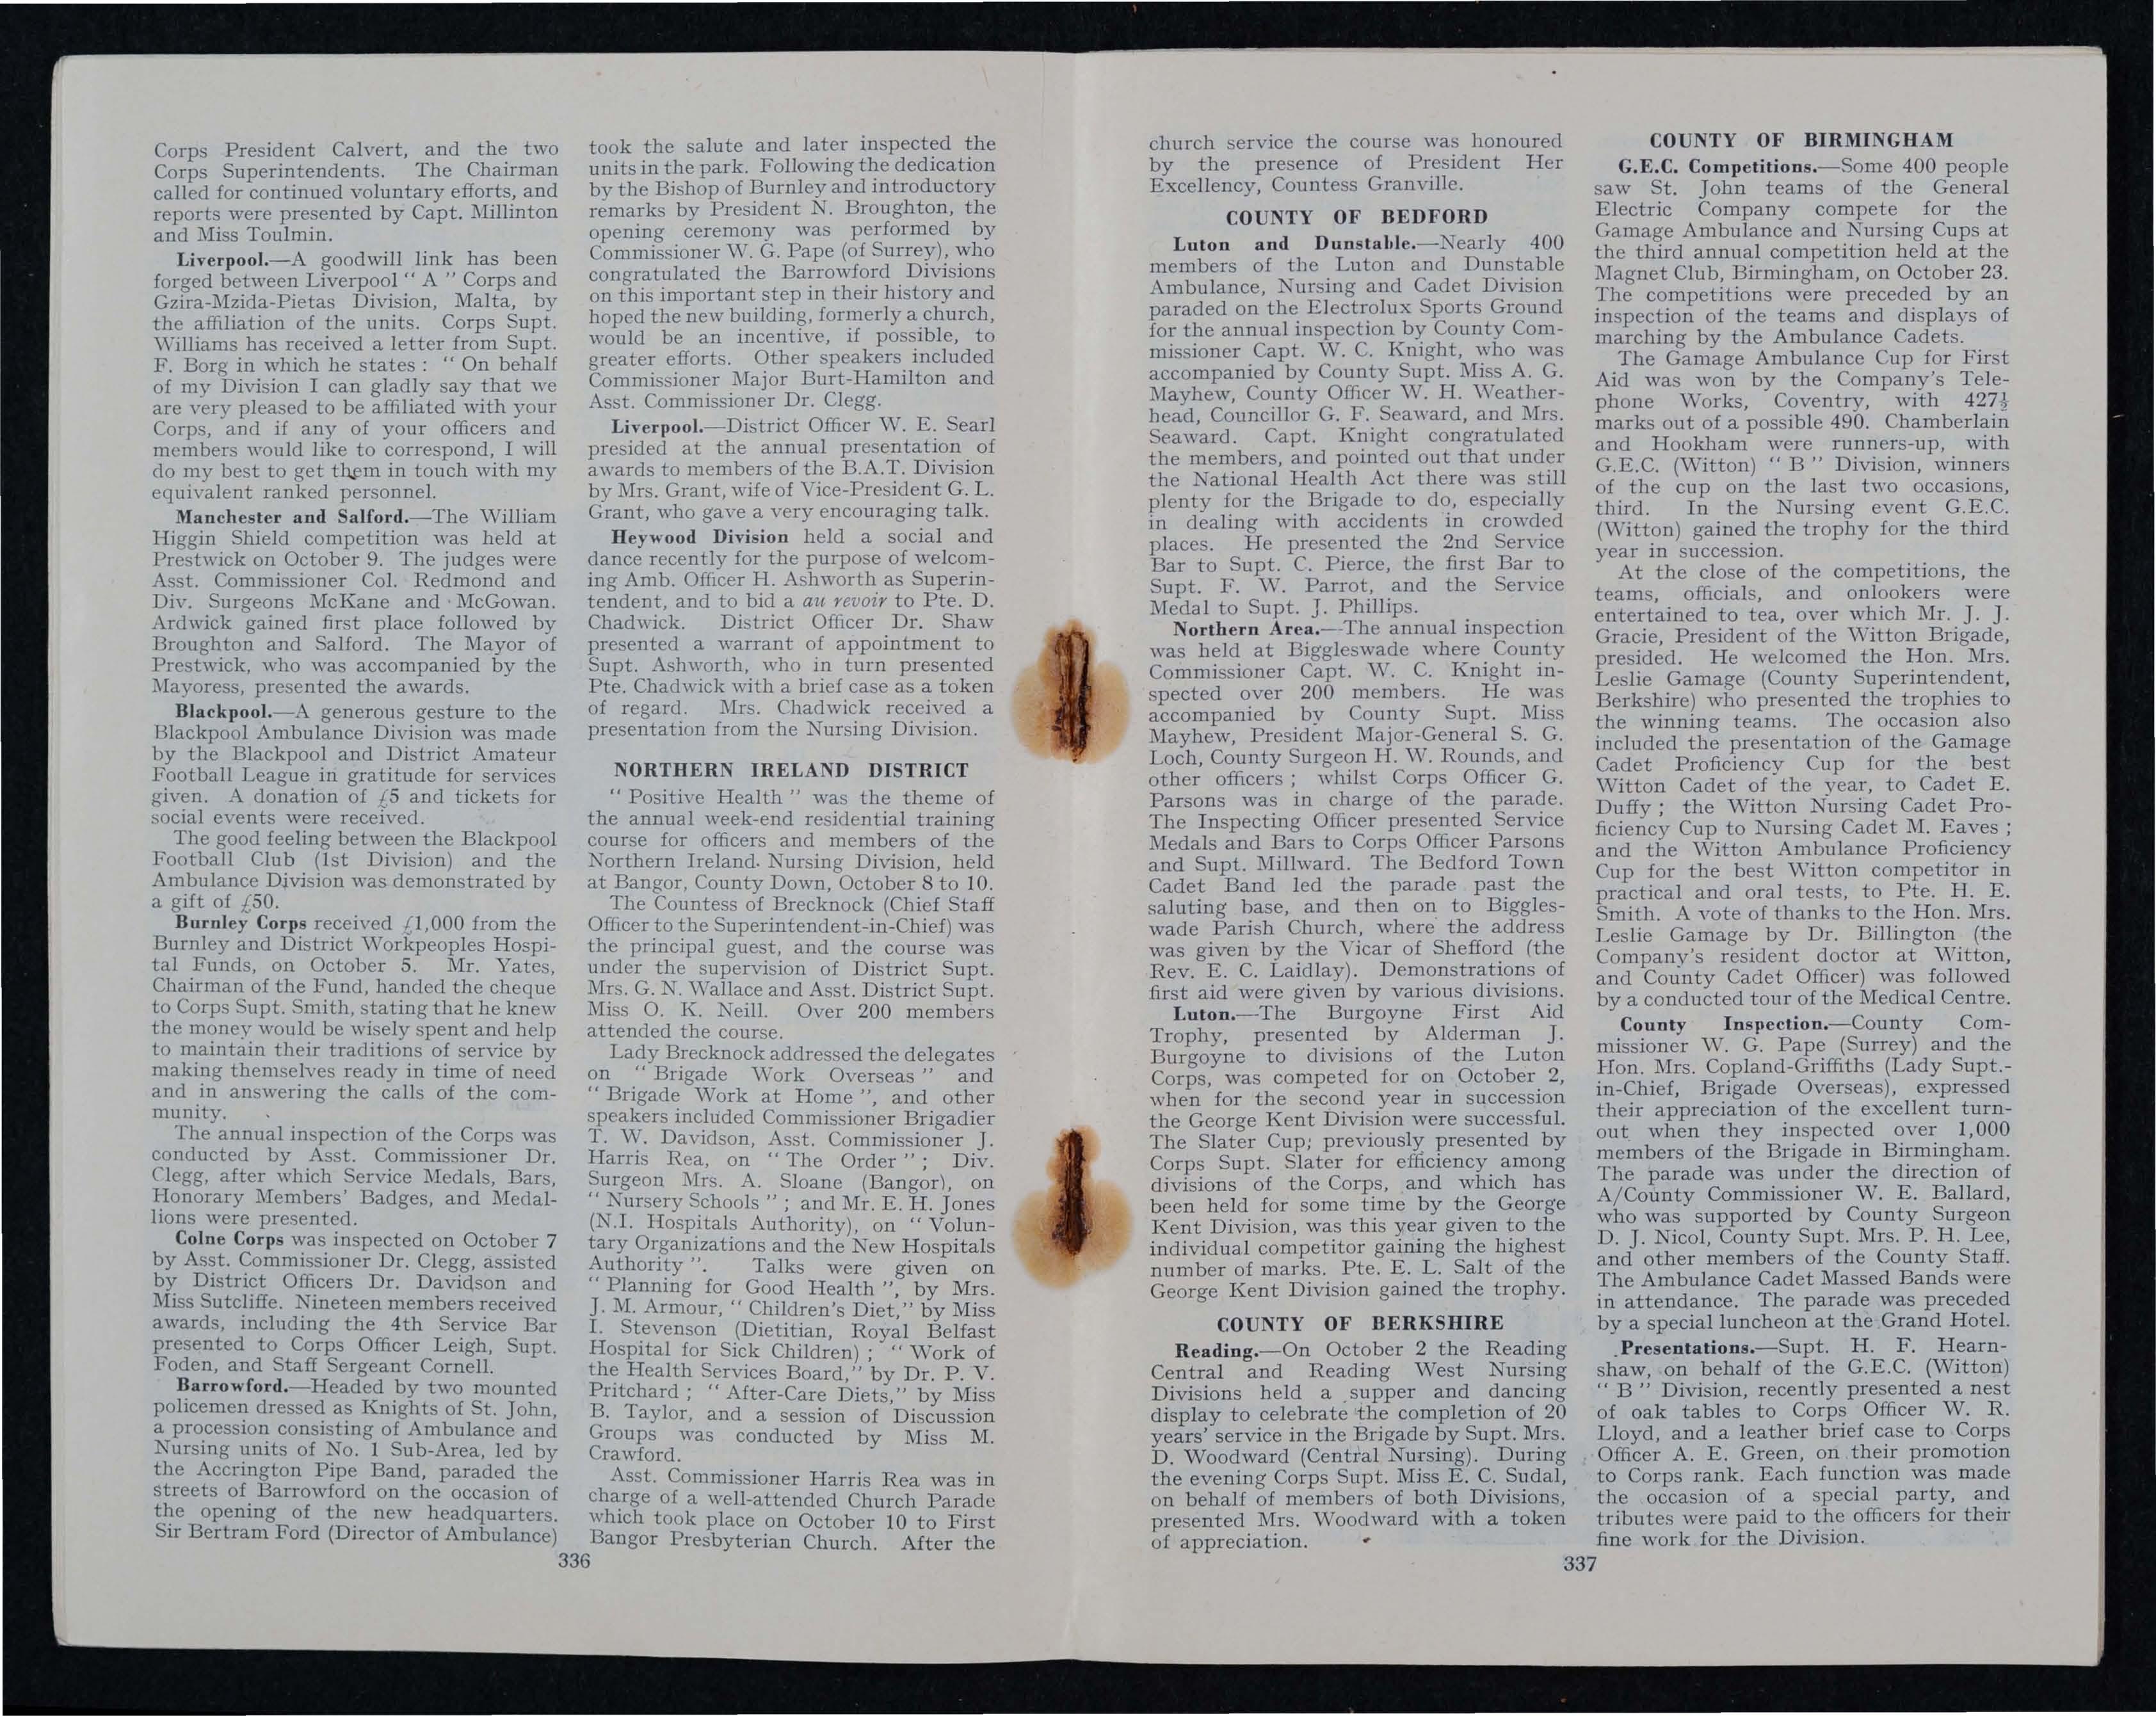 Corps President Calvert, and the two
Corps Superintendents. The Chairman
called for continued voluntary efforts, and
reports were presented by Capt. Millinton
and Miss Toulmin.
Liverpool.—A goodwill link has been
forged between Liverpool “ A ” Corps and
Gzira-Mzida-Pietas Division, Malta, by
the affiliation of the units. Corps Supt.
Williams has received a letter from Supt.
F. Borg in which he states : “ On behalf
of my Division I can gladly say that we
are very pleased to be affiliated with your
Corps, and if any of your officers and
members would like to correspond, I will
do my best to get them in touch with my
equivalent ranked personnel.
Manchester and Salford.—The William
Higgin Shield competition was held at
Prestwick on October 9. The judges were
Asst. Commissioner Col. Redmond and
Div. Surgeons McKane and McGowan.
Ardwick gained first place followed by
Broughton and Salford. The Mayor of
Prestwick, who was accompanied by the
Mayoress, presented the awards.
Blackpool.—A generous gesture to the
Blackpool Ambulance Division was made
by the Blackpool and District Amateur
Football League in gratitude for services
given. A donation of £5 and tickets for
social events were received.
The good feeling between the Blackpool
Football Club (1st Division) and the
Ambulance Division was demonstrated by
a gift of £50.
Burnley Corps received £1,000 from the
Burnley and District Workpeoples Hospi-
tal Funds, on October 5. Mr. Yates,
Chairman of the Fund, handed the cheque
to Corps Supt. Smith, stating that he knew
the money would be wisely spent and help
to maintain their traditions of service by
making themselves ready in time of need
and in answering the calls of the com-
munity.
The annual inspection of the Corps was
conducted by Asst. Commissioner Dr.
Clegg, after which Service Medals, Bars,
Honorary Members’ Badges, and Medal-
lions were presented.
Colne Corps was inspected on October 7
by Asst. Commissioner Dr. Clegg, assisted
by District Officers Dr. Davidson and
Miss Sutcliffe. Nineteen members received
awards, including the 4th Service Bar
presented to Corps Officer Leigh, Supt.
Foden, and Staff Sergeant Cornell.
Barrowford.—Headed by two mounted
policemen dressed as Knights of St. John,
a procession consisting of Ambulance and
Nursing units of No. 1 Sub-Area, led by
the Accrington Pipe Band, paraded the
streets of Barrowford on the occasion of
the opening of the new headquarters.
Sir Bertram Ford (Director of Ambulance)
took the salute and later inspected the
units in the park. Following the dedication
by the Bishop of Burnley and introductory
remarks by President N. Broughton, the
opening ceremony was performed by
Commissioner W. G. Pape (of Surrey), who
congratulated the Barrowford Divisions
on this important step in their history and
hoped the new building, formerly a church,
would be an incentive, if possible, to
greater efforts. Other speakers included
Commissioner Major Burt-Hamilton and
Asst. Commissioner Dr. Clegg.
Liverpool.—District Officer W. E. Searl
presided at the annual presentation of
awards to members of the B.A.T. Division
by Mrs. Grant, wife of Vice-President G. L.
Grant, who gave a very encouraging talk.
Heywood Division held a social and
dance recently for the purpose of welcom-
ing Amb. Officer H. Ashworth as Superin-
tendent, and to bid a au revoir to Pte. D.
Chadwick. District Officer Dr. Shaw
presented a warrant of appointment to
Supt. Ashworth, who in turn presented
Pte. Chadwick with a brief case as a token
of regard. Mrs. Chadwick received a
presentation from the Nursing Division.
NORTHERN IRELAND DISTRICT
“ Positive Health ” was the theme of
the annual week-end residential training
course for officers and members of the
Northern Ireland Nursing Division, held
at Bangor, County Down, October 8 to 10.
The Countess of Brecknock (Chief Staff
Officer to the Superintendent-in-Chief) was
the principal guest, and the course was
under the supervision of District Supt.
Mrs. G. N. Wallace and Asst. District Supt.
Miss O. K. Neill. Over 200 members
attended the course.
Lady Brecknock addressed the delegates
on “ Brigade Work Overseas ” and
“ Brigade Work at Home ”, and other
speakers included Commissioner Brigadier
T. W. Davidson, Asst. Commissioner J.
Harris Rea, on “ The Order ” ; Div.
Surgeon Mrs. A. Sloane (Bangor), on
“ Nursery Schools ” ; and Mr. E. H. Jones
(N.I. Hospitals Authority), on “ Volun-
tary Organizations and the New Hospitals
Authority ”. Talks were given on
“ Planning for Good Health ”, by Mrs.
J. M. Armour, “ Children’s Diet,” by Miss
I. Stevenson (Dietitian, Royal Belfast
Hospital for Sick Children) ; “ Work of
the Health Services Board,” by Dr. P. V.
Pritchard ; “ After-Care Diets,” by Miss
B. Taylor, and a session of Discussion
Groups was conducted by Miss M.
Crawford.
Asst. Commissioner Harris Rea was in
charge of a well-attended Church Parade
which took place on October 10 to First
Bangor Presbyterian Church. After the
336
church service the course was honoured
by the presence of President Her
Excellency, Countess Granville.
COUNTY OF BEDFORD
Luton and Dunstable.—Nearly 400
members of the Luton and Dunstable
Ambulance, Nursing and Cadet Division
paraded on the Electrolux Sports Ground
for the annual inspection by County Com-
missioner Capt. W. C. Knight, who was
accompanied by County Supt. Miss A. G.
Mayhew, County Officer W. H. Weather-
head, Councillor G. F. Seaward, and Mrs.
Seaward. Capt. Knight congratulated
the members, and pointed out that under
the National Health Act there was still
plenty for the Brigade to do, especially
in dealing with accidents in crowded
places. He presented the 2nd Service
Bar to Supt. C. Pierce, the first Bar to
Supt. F. W. Parrot, and the Service
Medal to Supt. J. Phillips.
Northern Area.—The annual inspection
was held at Biggleswade where County
Commissioner Capt. W. C. Knight in-
spected over 200 members. He was
accompanied by County Supt. Miss
Mayhew, President Major-General S. G.
Loch, County Surgeon H. W. Rounds, and
other officers ; whilst Corps Officer G.
Parsons was in charge of the parade.
The Inspecting Officer presented Service
Medals and Bars to Corps Officer Parsons
and Supt. Millward. The Bedford Town
Cadet Band led the parade past the
saluting base, and then on to Biggles-
wade Parish Church, where the address
was given by the Vicar of Shefford (the
Rev. E. C. Laidlay). Demonstrations of
first aid were given by various divisions.
Luton.—The Burgoyne First Aid
Trophy, presented by Alderman J.
Burgoyne to divisions of the Luton
Corps, was competed for on October 2,
when for the second year in succession
the George Kent Division were successful.
The Slater Cup; previously presented by
Corps Supt. Slater for efficiency among
divisions of the Corps, and which has
been held for some time by the George
Kent Division, was this year given to the
individual competitor gaining the highest
number of marks. Pte. E. L. Salt of the
George Kent Division gained the trophy.
COUNTY OF BERKSHIRE
Reading.—On October 2 the Reading
Central and Reading West Nursing
Divisions held a supper and dancing
display to celebrate the completion of 20
years’ service in the Brigade by Supt. Mrs.
D. Woodward (Central Nursing). During
the evening Corps Supt. Miss E. C. Sudal,
on behalf of members of both Divisions,
presented Mrs. Woodward with a token
of appreciation.
COUNTY OF BIRMINGHAM
G.E.C. Competitions.—Some 400 people
saw St. John teams of the General
Electric Company compete for the
Gamage Ambulance and Nursing Cups at
the third annual competition held at the
Magnet Club, Birmingham, on October 23.
The competitions were preceded by an
inspection of the teams and displays of
marching by the Ambulance Cadets.
The Gamage Ambulance Cup for First
Aid was won by the Company’s Tele-
phone Works, Coventry, with 427½
marks out of a possible 490. Chamberlain
and Hookham were runners-up, with
G.E.C. (Witton) “ B ” Division, winners
of the cup on the last two occasions,
third. In the Nursing event G.E.C.
(Witton) gained the trophy for the third
year in succession.
At the close of the competitions, the
teams, officials, and onlookers were
entertained to tea, over which Mr. J. J.
Gracie, President of the Witton Brigade,
presided. He welcomed the Hon. Mrs.
Leslie Gamage (County Superintendent,
Berkshire) who presented the trophies to
the winning teams. The occasion also
included the presentation of the Gamage
Cadet Proficiency Cup for the best
Witton Cadet of the year, to Cadet E.
Duffy ; the Witton Nursing Cadet Pro-
ficiency Cup to Nursing Cadet M. Eaves ;
and the Witton Ambulance Proficiency
Cup for the best Witton competitor in
practical and oral tests, to Pte. H. E.
Smith. A vote of thanks to the Hon. Mrs.
Leslie Gamage by Dr. Billington (the
Company’s resident doctor at Witton,
and County Cadet Officer) was followed
by a conducted tour of the Medical Centre.
County Inspection.—County Com-
missioner W. G. Pape (Surrey) and the
Hon. Mrs. Copland-Griffiths (Lady Supt.-
in-Chief, Brigade Overseas), expressed
their appreciation of the excellent turn-
out when they inspected over 1,000
members of the Brigade in Birmingham.
The parade was under the direction of
A/County Commissioner W. E. Ballard,
who was supported by County Surgeon
D. J. Nicol, County Supt. Mrs. P. H. Lee,
and other members of the County Staff.
The Ambulance Cadet Massed Bands were
in attendance. The parade was preceded
by a special luncheon at the Grand Hotel.
Presentations.—Supt. H. F. Hearn-
shaw, on behalf of the G.E.C. (Witton)
“ B ” Division, recently presented a nest
of oak tables to Corps Officer W. R.
Lloyd, and a leather brief case to Corps
Officer A. E. Green, on their promotion
to Corps rank. Each function was made
the occasion of a special party, and
tributes were paid to the officers for their
fine work for the Division.
337